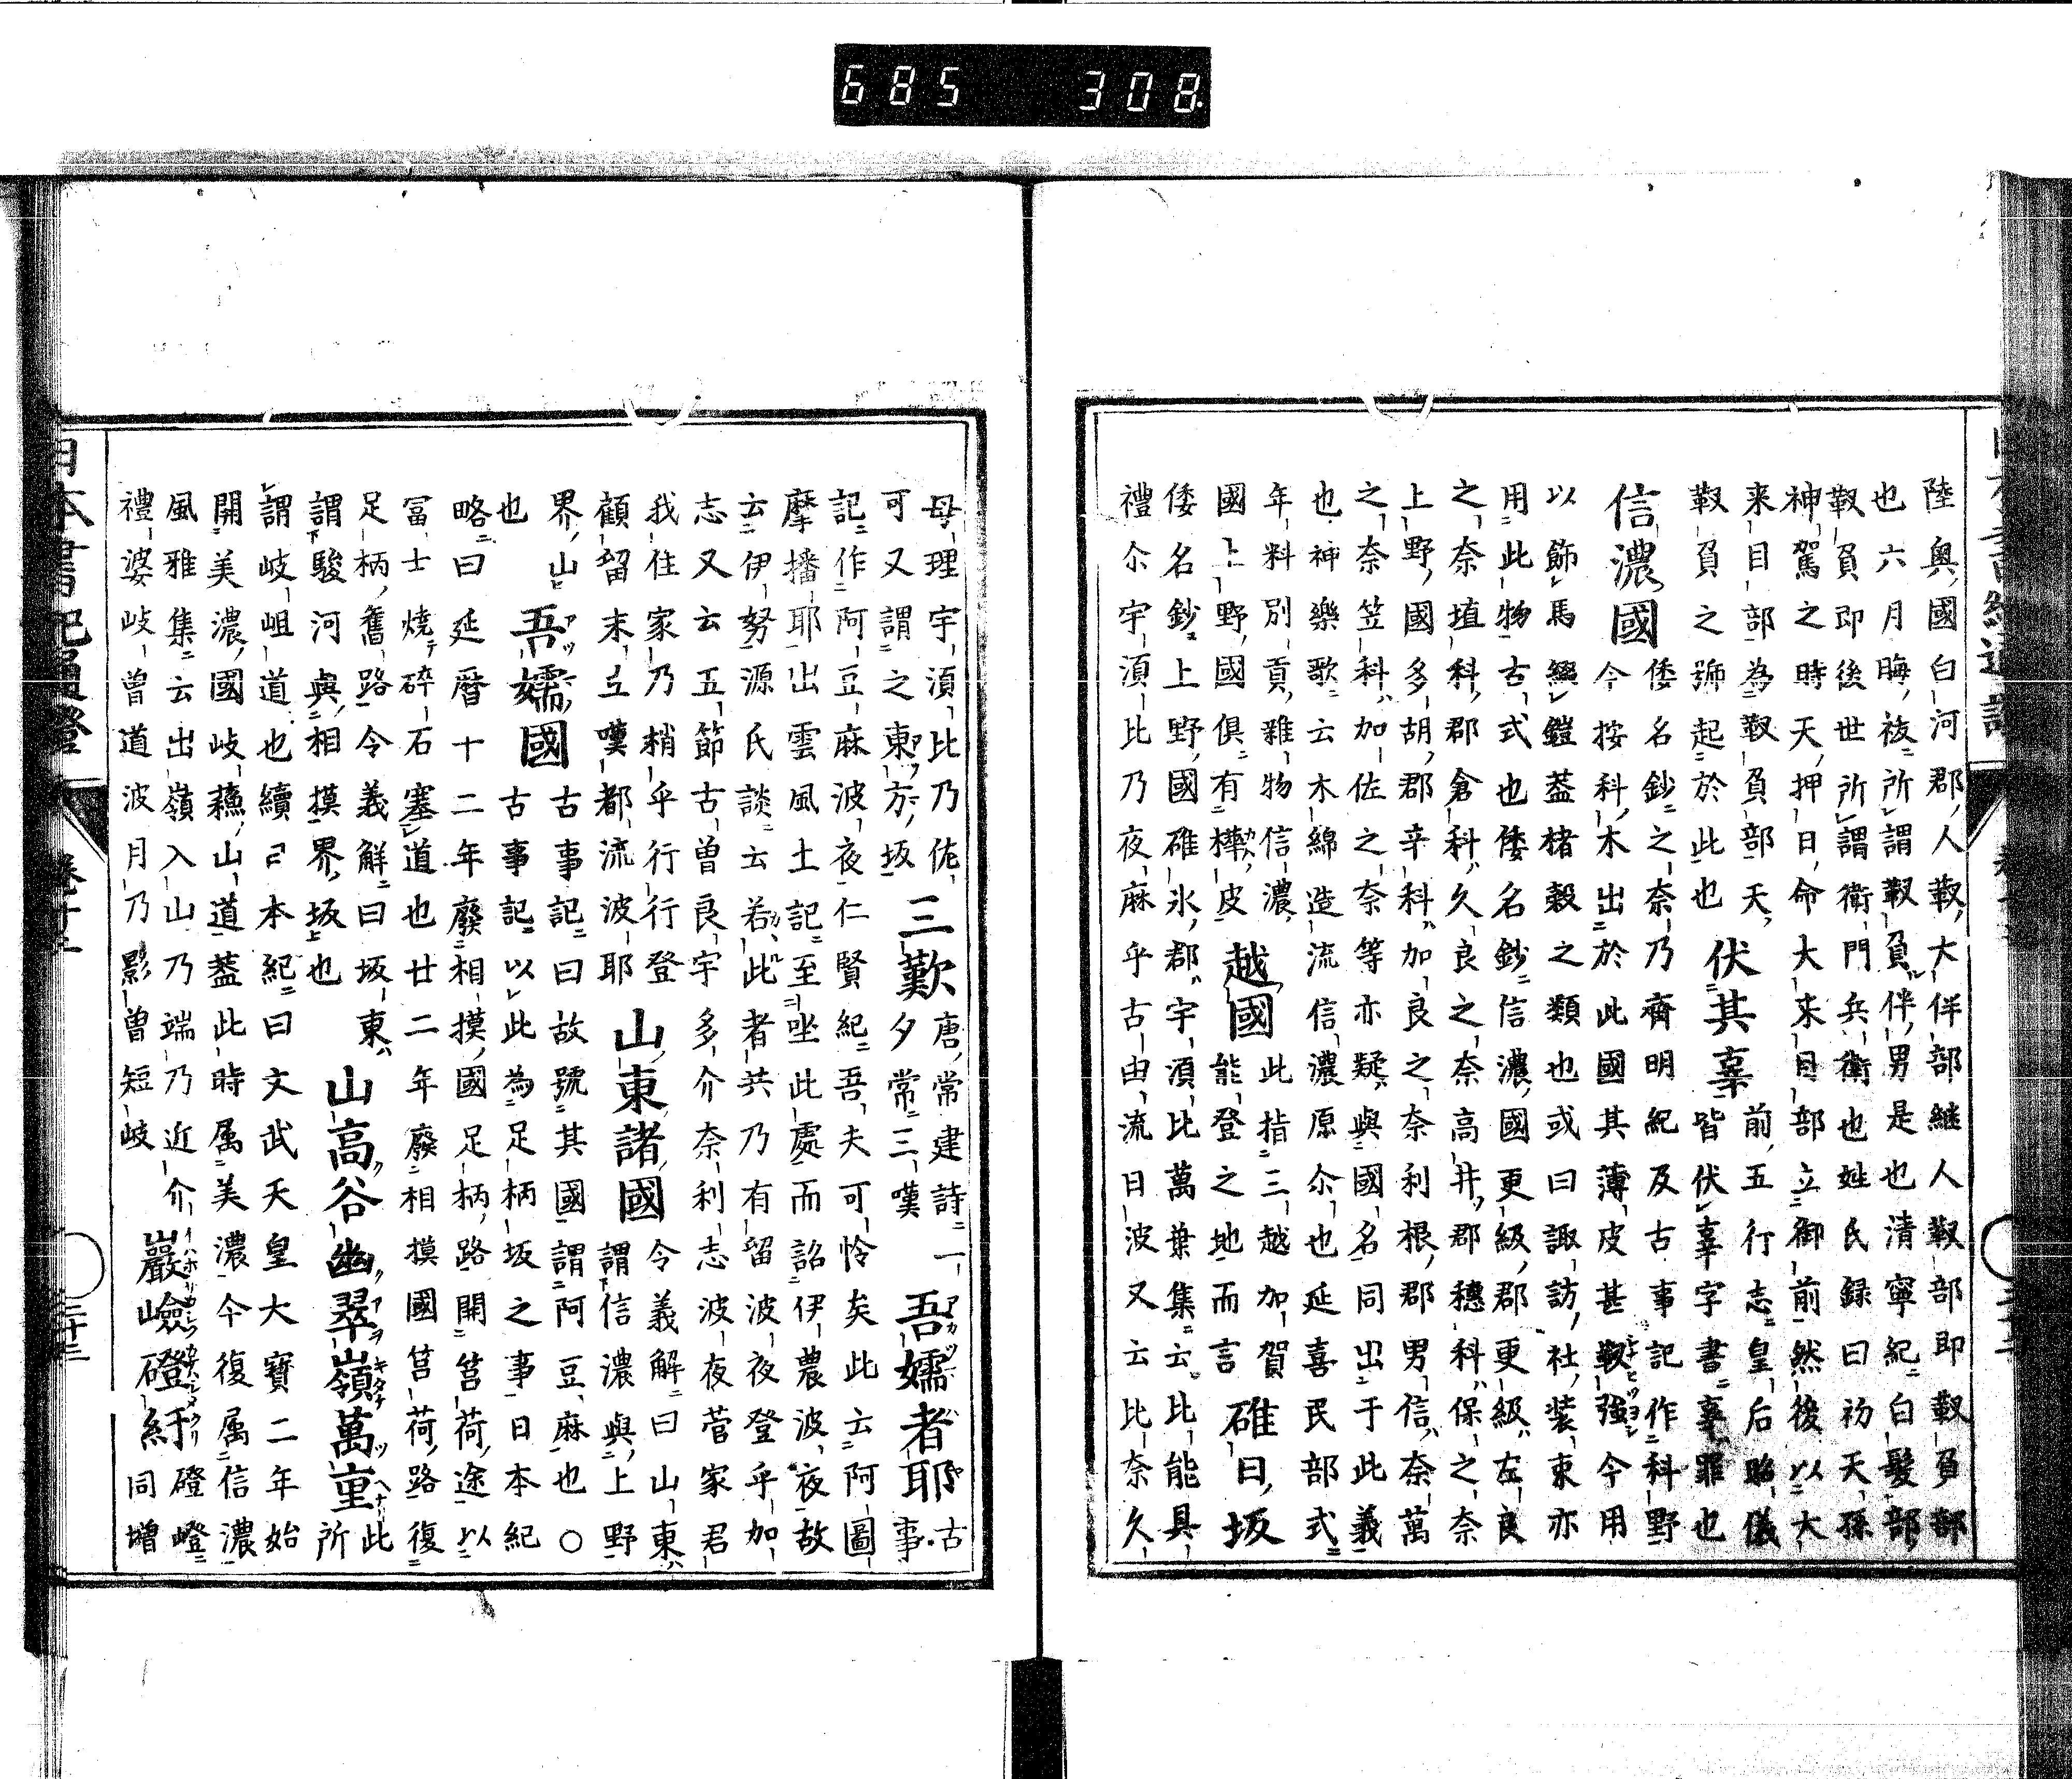 685 308
陸奥國白河郡人靫大伴部継人靫部即靫負部
也六月晦祓所謂靫負伴男是也清寧紀白髮部
靫負即後世所謂衛門兵衛也姓氏録曰初天孫
神駕之時天押日命大来目部立御前然後以大
来目部為靫負部天前五行志皇后貽儀
靫負之號起於此也伏其辜皆伏辜字書辜罪也
信濃國倭名鈔之奈乃齊明紀及古事記作科野
今按科木出於此國其薄皮甚靱強今用
以飾馬鎧蓋楮穀之類也或曰諏訪社装束亦
用此物古式也倭名鈔信濃國更級郡更級左良
之奈埴科郡倉科久良之奈高井郡穂科保之奈
上野國多胡郡辛科加良之奈利根郡男信奈萬
之奈笠科加佐之奈等亦疑與國名同出于此義
也神樂歌云木綿造流信濃原尒也延喜民部式
年料別貢雜物信濃
國上野國俱有樺皮越國此指三越加賀能登之地而言碓日坂
倭名鈔上野國碓氷郡宇須比萬葉集云比能具
禮尒宇須比乃夜麻乎古由流日波又云比奈久
母理宇須比乃佐三歎唐常建詩一吾嬬者耶古事
可又謂之東方坂夕常三嘆
記作阿豆麻波夜仁賢紀吾夫可怜矣此云阿圖
摩播耶出雲風土記至坐此處而詔伊農波夜故
云伊努源氏談云若此者共乃有留波夜登乎加
志又云五節古曽良宇多介奈利志波夜菅家君
我住家乃梢乎行行登
顧留末立嘆都流波耶山東諸國令義解曰山東
謂信濃與上野
界山吾嬬國古事記曰故號其國謂阿豆麻也○
也古事記以此為足柄坂之事日本紀
略曰延暦十二年廢相摸國足柄路開筥荷途以
冨士焼碎石塞道也廿二年廢相摸國筥荷路復
足柄舊路令義解曰坂東山高谷幽翠嶺萬重此所
謂駿河與相摸界坂也
謂岐岨道也續日本紀曰文武天皇大寶二年始
開美濃國岐蘓山道蓋此時属美濃今復属信濃
風雅集云出嶺入山乃端乃近介巖嶮磴紆磴嶝同增
禮婆岐曽道波月乃影曽短岐
日本書紀通證 卷十二 三十三